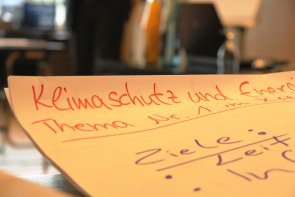 Klimaschutz und Energi
Thema Nr. 1 im
Ziele:
Zeit
In